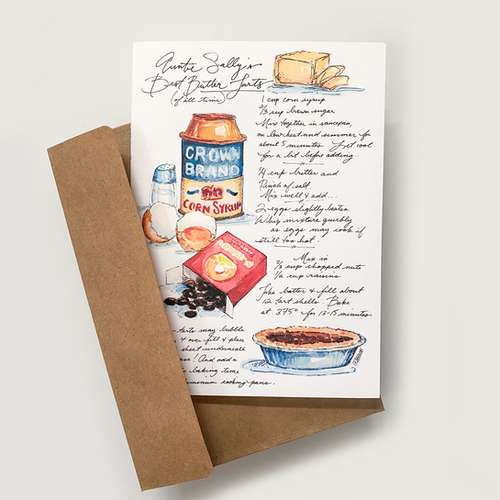 Auntie Sally's
Best Butter Tarts
(of all time)
1 cup corn syrup
2/3 cup brown sugar
Mix together in saucepan,
on low heat and simmer for
about 5 minutes. Let cool
for a bit before adding
1/4 cup butter and
Pinch of salt.
Mix well & add...
2 eggs slightly beaten
Whip mixture quickly
as eggs may cook if
still too hot.
Mix in
2/3 cup chopped nuts
1/2 cup raisins
Take batter & fill about
12 tart shells. Bake
at 375° for 12-15 minutes
CROWN
BRAND
CORN SYRUP
tarts may bubble
& over fill & place
sheet underneath
! And add a
baking time
cooking pans.